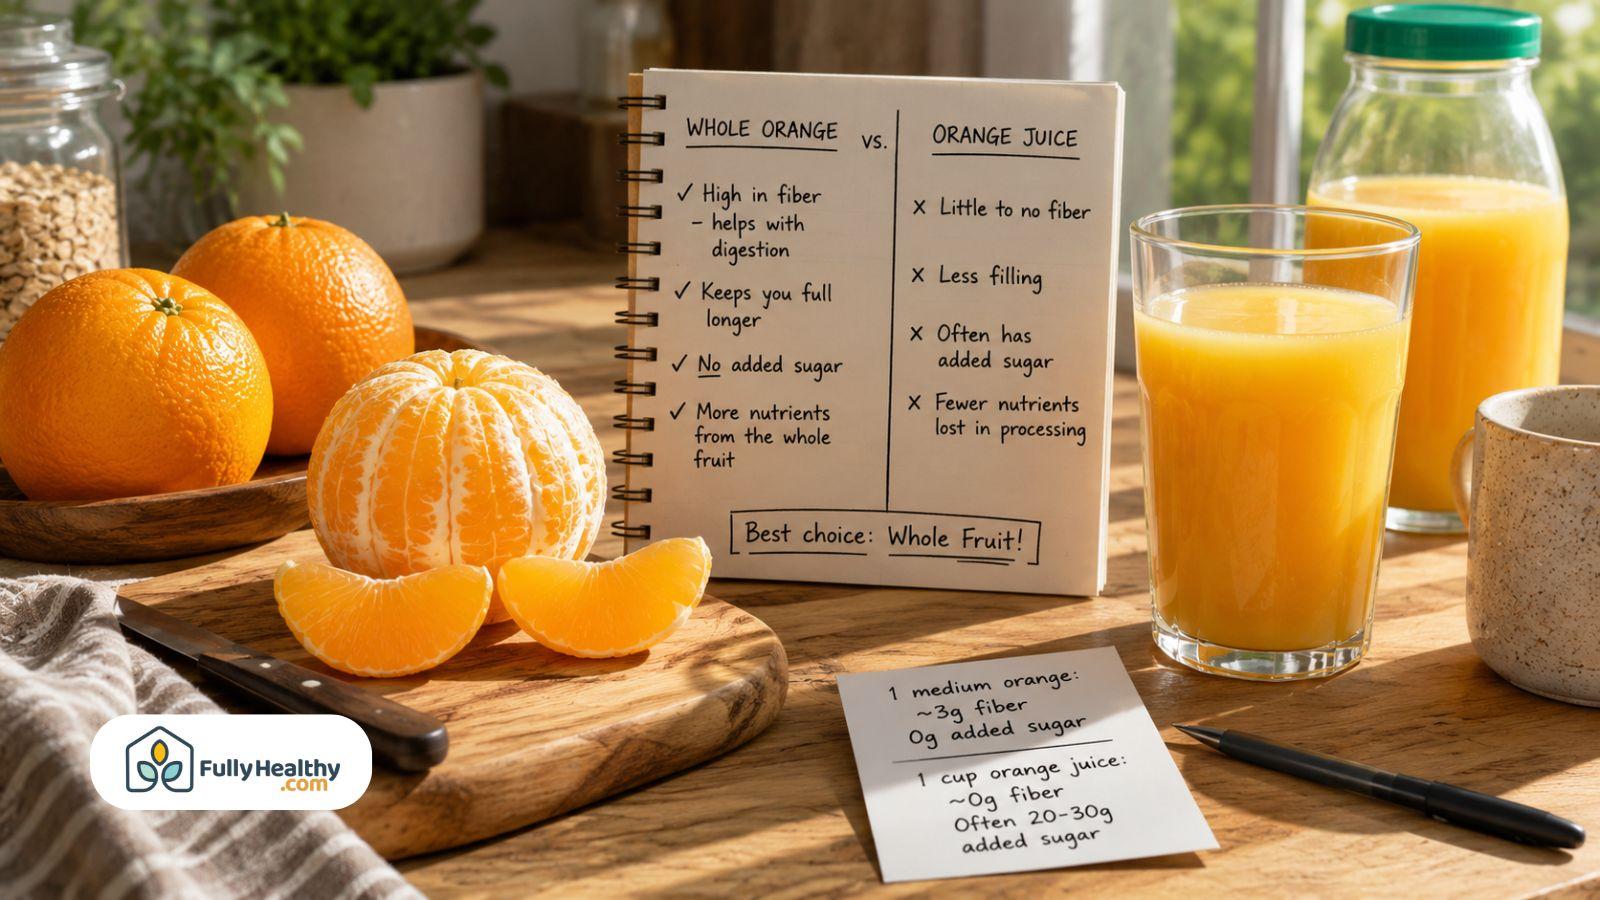 WHOLE ORANGE vs.
✓ High in fiber
– helps with
digestion
✓ Keeps you full
longer
✓ No added sugar
✓ More nutrients
from the whole
fruit
ORANGE JUICE
X Little to no fiber
X Less filling
X Often has
added sugar
X Fewer nutrients
lost in processing
Best choice: Whole Fruit!
1 medium orange:
~3g fiber
0g added sugar
1 cup orange juice:
~0g fiber
Often 20-30g
added sugar
FullyHealthy
.com